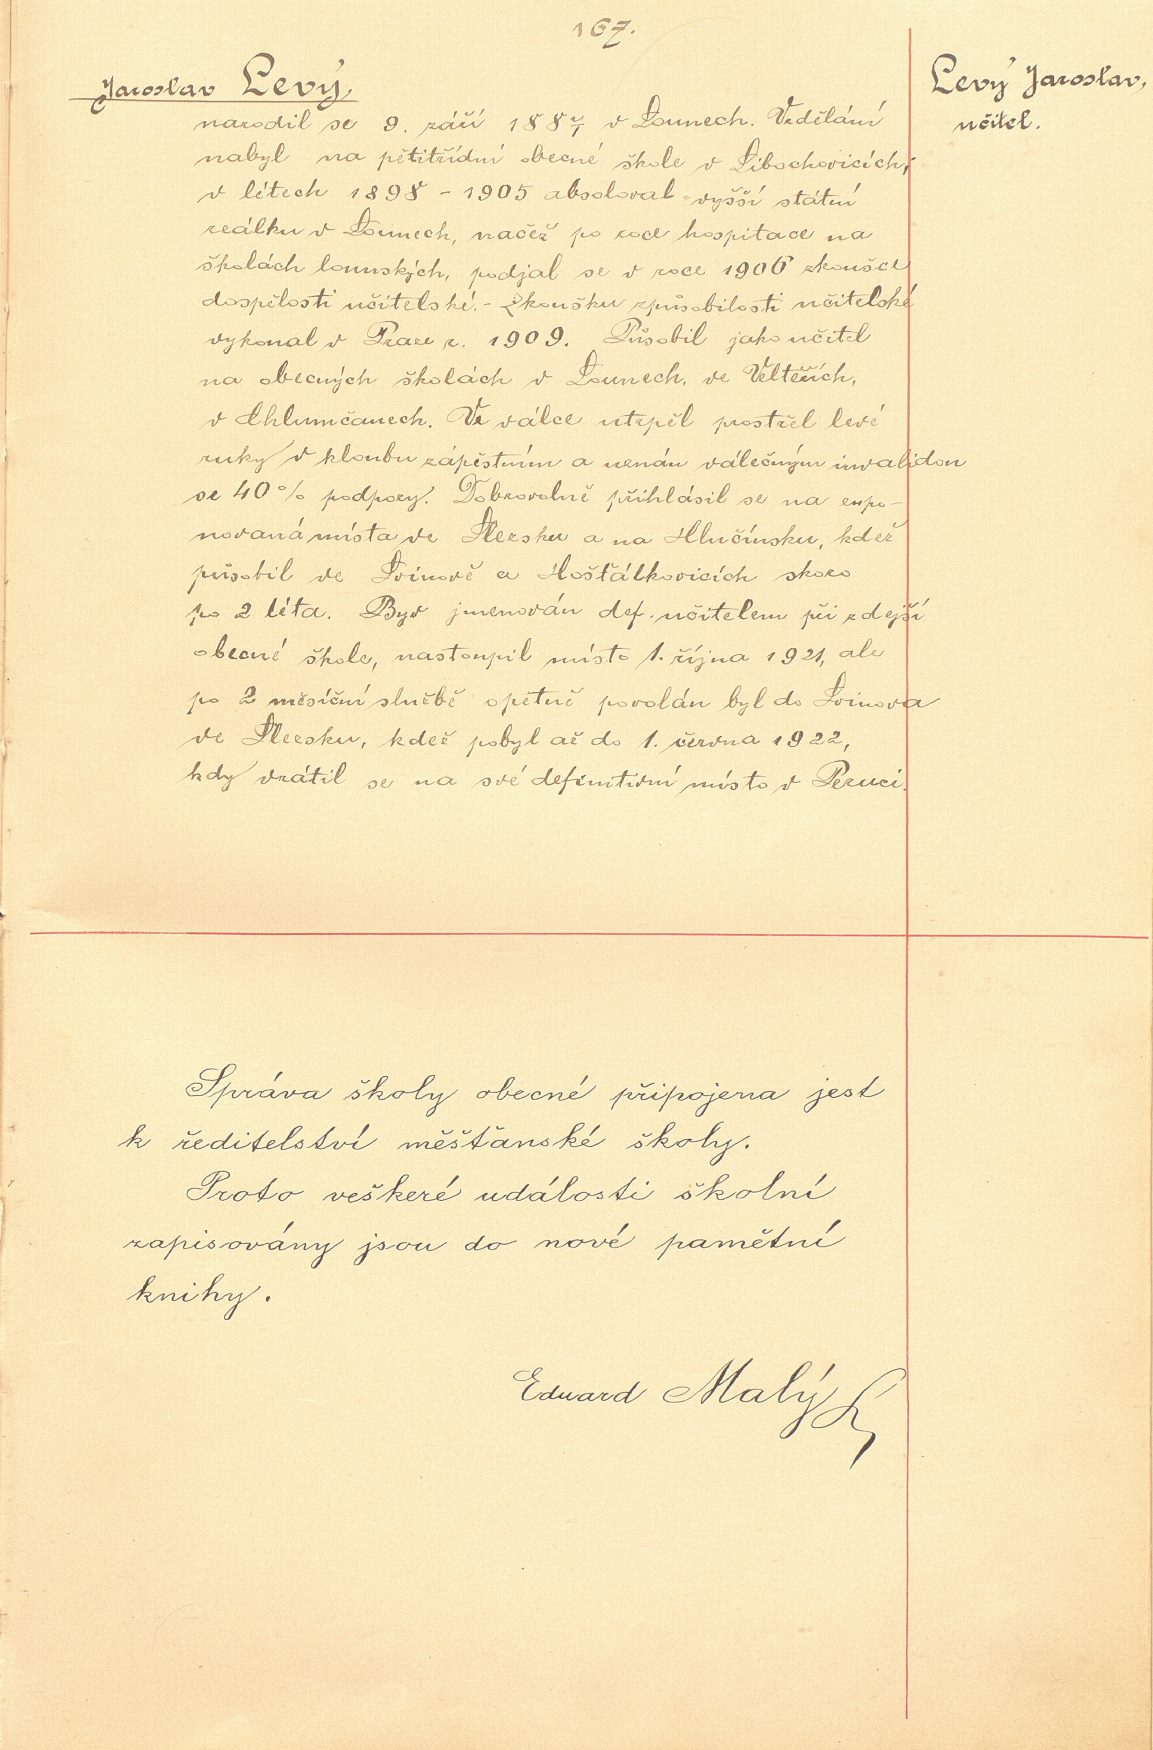 167.
Jaroslav Levý,
Levý Jaroslav,
učitel.
narodil se 9. září 1887 v Lounech. Vzdělání
nabyl na pětitřídní obecné škole v Libochovicích,
v létech 1898 - 1905 absoloval vyšší státní
reálku v Lounech, načež po roce hospitace na
školách lounských, podjal se v roce 1906 zkoušce
dospělosti učitelské. - Zkoušku způsobilosti učitelské
vykonal v Praze r. 1909. Působil jako učitel
na obecných školách v Lounech, ve Veltěžích,
v Chlumčanech. Ve válce utrpěl prostřel levé
ruky v kloubu zápěstním a uznán válečným invalidou
se 40% podpory. Dobrovolně přihlásil se na expo-
novaná místa ve Slezsku a na Hlučínsku, kdež
působil ve Svinově a Hošťálkovicích skoro
po 2 léta. Byv jmenován def. učitelem při zdejší
obecné škole, nastoupil místo 1. října 1921, ale
po 2 měsíční službě opětně povolán byl do Svinova
ve Slezsku, kdež pobyl až do 1. června 1922,
kdy vrátil se na své definitivní místo v Peruci.
Správa školy obecné připojena jest
k ředitelství měšťanské školy.
Proto veškeré události školní
zapisovány jsou do nové pamětní
knihy.
Eduard Malý